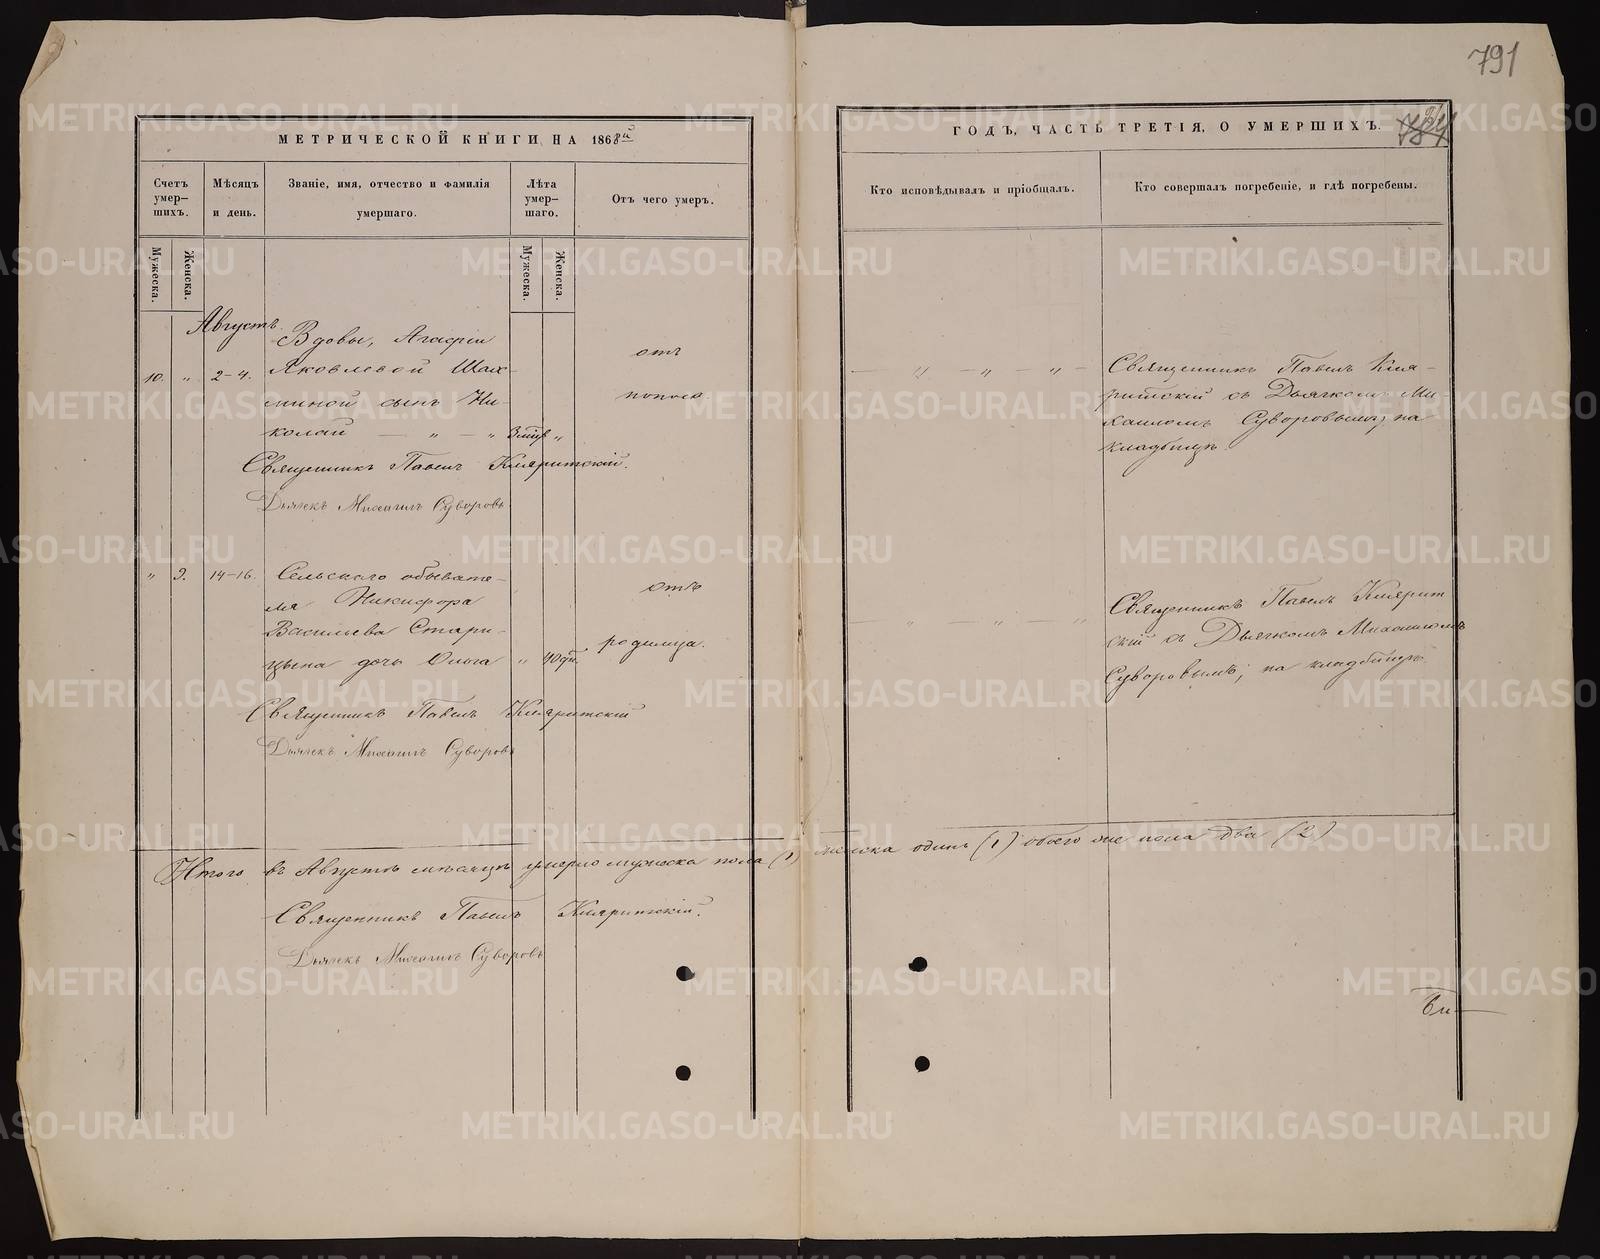 791
МЕТРИЧЕСКОЙ КНИГИ НА 1868й
ГОДЪ, ЧАСТЬ ТРЕТІЯ, О УМЕРШИХЪ.
Счетъ умер-шихъ.
Мужеска.
Женска.
Мѣсяцъ и день.
Званіе, имя, отчество и фамилія умершаго.
Лѣта умер-шаго.
Мужеска.
Женска.
Отъ чего умеръ.
Кто исповѣдывалъ и пріобщалъ.
Кто совершалъ погребеніе, и гдѣ погребены.
Августъ.
10. " 2-4.
Вдовы, Агафіи
Яковлевой Шах-
миной сынъ Ни-
колай — " — " 3 мѣс "
отъ
поноса
— " — " — " —
Священникъ Павелъ
съ Дьячкомъ Ми-
хаиломъ Суворовымъ, на
кладбищѣ.
Священникъ Павелъ
Дьячекъ Михаилъ Суворовъ
" 9. 14-16.
Сельскаго обывате-
ля Никифора
Васильева Стари-
цына дочь Ольга " 40 дн.
отъ
родимца.
" — " — " — "
Священникъ Павелъ
скій съ Дьячкомъ Михаиломъ
Суворовымъ; на кладбищѣ
Священникъ Павелъ
Дьячекъ Михаилъ Суворовъ
Итого въ Августѣ мѣсяцѣ умерло мужеска пола (1) женска одинъ (1) обоего же пола два (2)
Священникъ Павелъ
Дьячекъ Михаилъ Суворовъ
METRIKI.GASO-URAL.RU